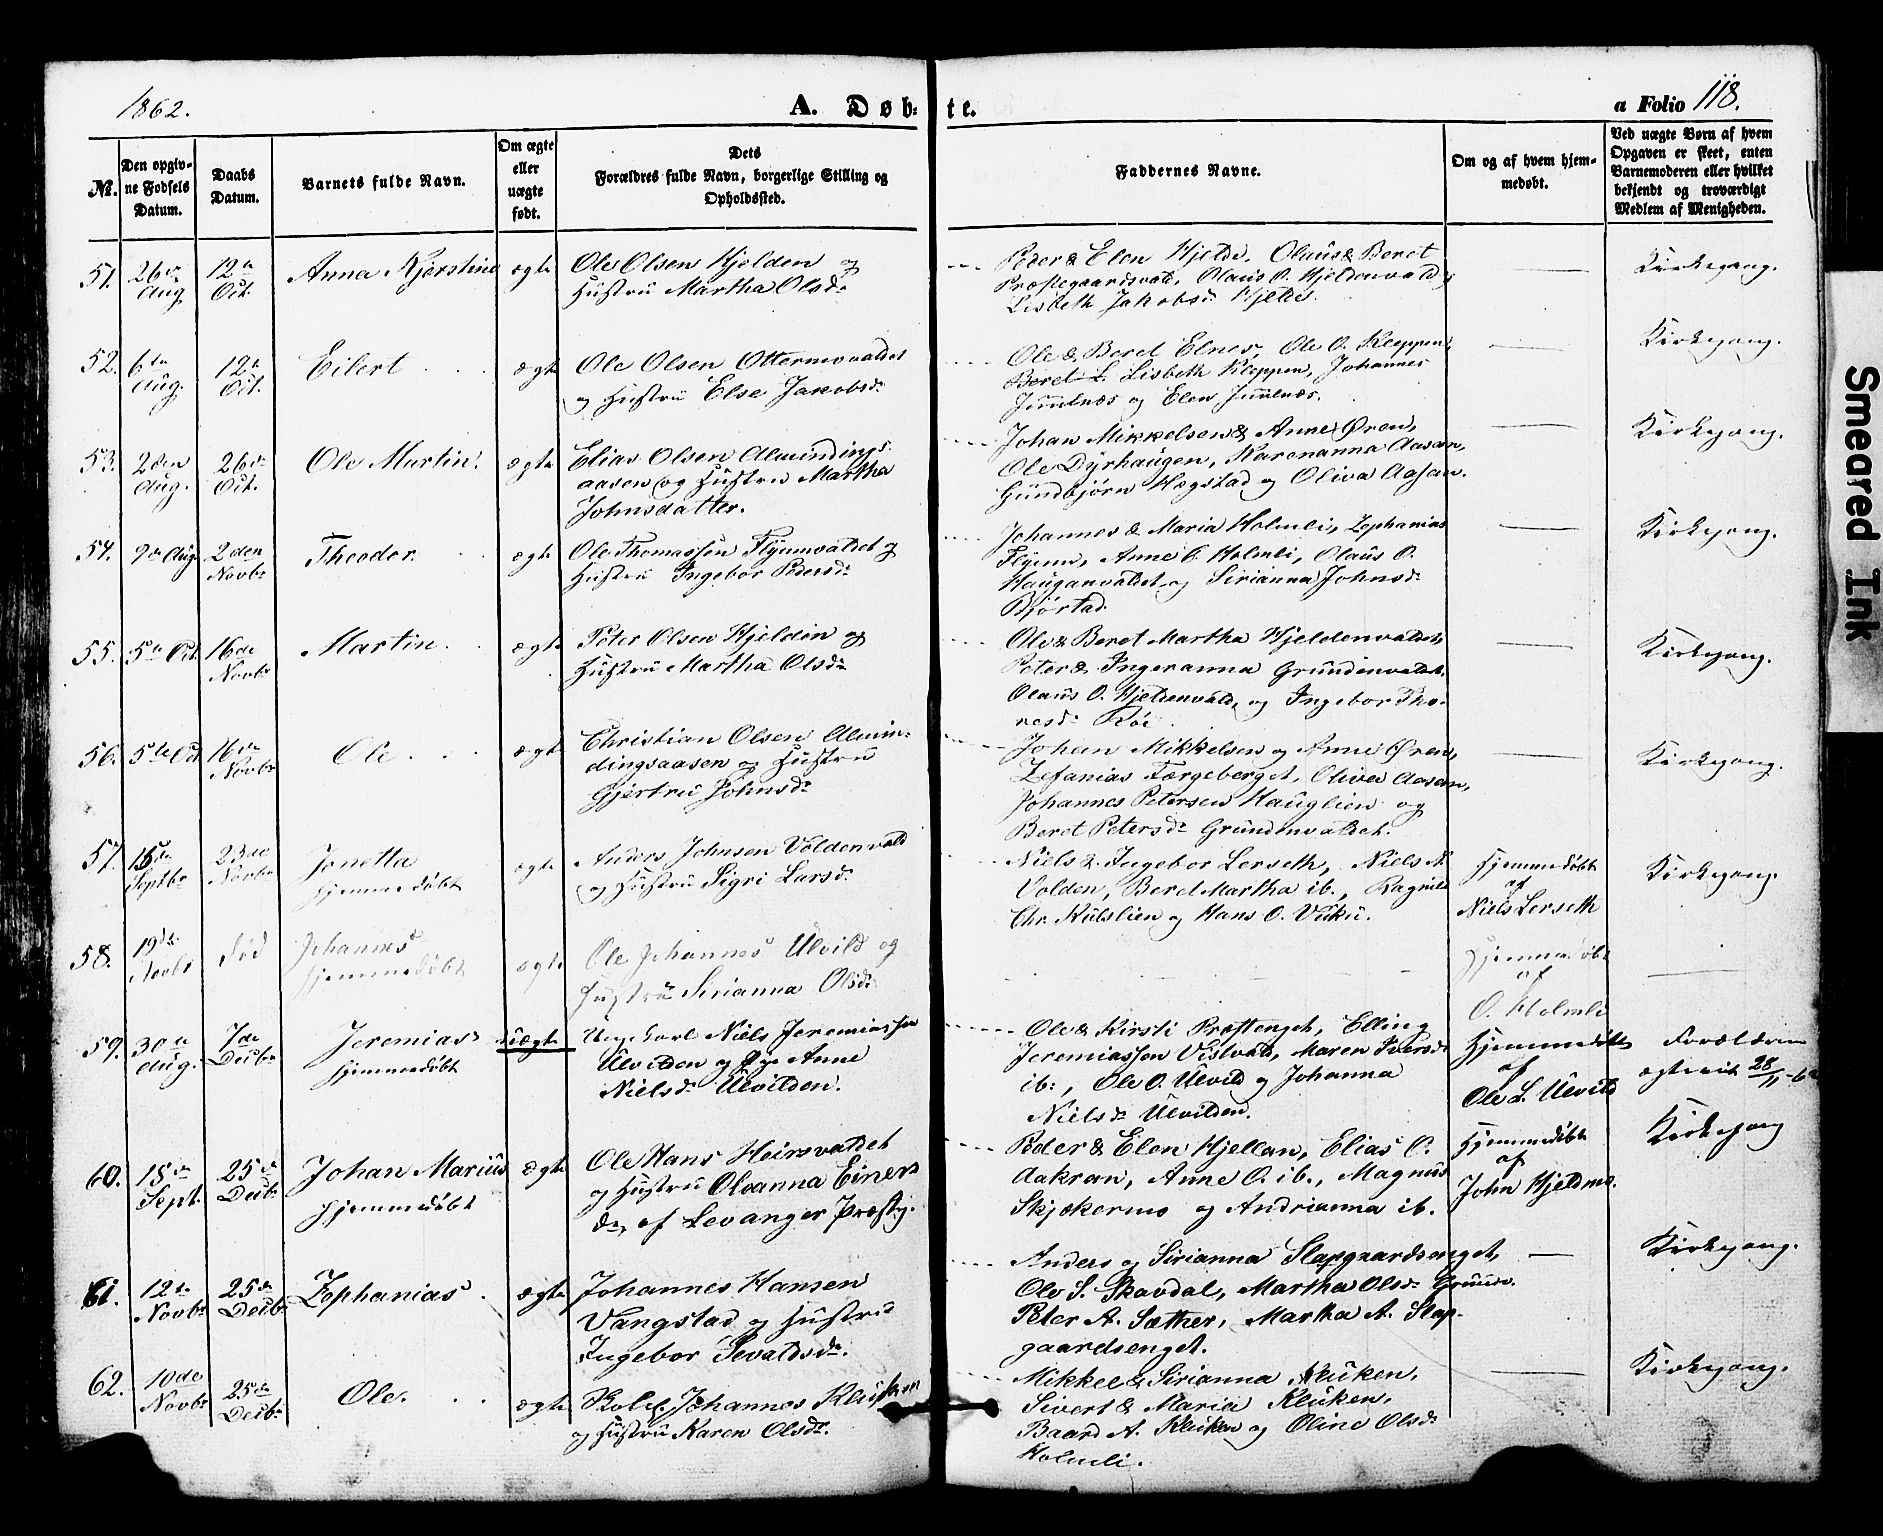 1862.
A. Døb-
te.
a Folio 118.
No.
Den opgiv-
ne Fødsels
Datum.
Daabs
Datum.
Barnets fulde Navn.
Om ægte
eller
uægte
født.
Dets
Forældres fulde Navn, borgerlige Stilling og
Opholdssted.
Faddernes Navne.
Om og af hvem hjem-
medøbt.
Ved uægte Børn af hvem
Opgaven er skeet, enten
Barnemoderen eller hvilket
bekjendt og troværdigt
Medlem af Menigheden.
51. 26de Aug. 12te Oct. Anna Kjerstine ægte
Ole Olsen Hjelden og
Hustru Martha Olsdr
Peder & Elen Hjelde, Olaus & Beret
Præstegaardsvald, Olaus O. Hjeldenvald,
Lisbeth Jakobsdr Hjelde.
Kirkegang.
52. 6te Aug. 12te Oct. Eilert ægte
Ole Olsen Ottermovaldet
og Hustru Else Jakobsdr
Ole & Beret Elnes, Ole O. Kleppen,
Beret L. Lisbeth Kleppen, Johannes
og Elen
Kirkegang.
53. 2den Aug. 26de Oct. Ole Martin. ægte
Elias Olsen Almindings-
aasen og Hustru Martha
Johnsdatter.
Johan Mikkelsen & Anne Øren,
Ole Dyrhaugen, Karenanna Aasan,
Gundbjørn Hegstad og Oliva Aasan.
Kirkegang.
54. 9de Aug. 2den Novbr Theodor. ægte
Ole Thomassen Flyumvaldet og
Hustru Ingebor Pedersdr
Johannes & Maria Holmli, Zephanias
Flyum, Anne O. Holmli, Olaus O.
Hauganvaldet og Sirianna Johnsdr
Bjørtad.
Kirkegang.
55. 5te Oct. 16de Novbr Martin. ægte
Peter Olsen Hjelden og
Hustru Martha Olsdr
Ole & Beret Martha Hjeldenvaldet,
Peter & Ingeranna Grundenvaldet.
Olaus O. Hjeldenvald, og Ingebor Tho-
nesdr
Kirkegang.
56. 5te Oct 16de Novbr Ole. ægte
Christian Olsen Almin-
dingsaasen og Hustru
Gjertru Johnsdr
Johan Mikkelsen og Anne Øren,
Zefanias Færgeberget, Oliva Aasan,
Johannes Petersen Hauglien og
Beret Petersdr Grundenvaldet.
Kirkegang.
57. 15de Septbr 23de Novbr Jonetta
hjemmedøbt
ægte
Anders Johnsen Voldenvald
og Hustru Sigri Larsdr
Niels & Ingebor Lerseth, Niels N.
Volden, Beret Martha ib., Ragnild
Chr. Kulslien og Hans O. Vuku.
Hjemmedøbt
af
Niels Lerseth
Kirkegang.
58. 19de Novbr død Johannes
hjemmedøbt
ægte
Ole Johannes Ulvild og
Hustru Sirianna Olsdr
Hjemmedøbt
af
O. Holmli
59. 30te Aug. 7de Decbr Jeremias
hjemmedøbt
uægte
Ungekarl Niels Jeremiassen
Ulvilden og Pige Anne
Nielsdr Ulvilden.
Ole & Kirsti Præstenget, Elling
Jeremiassen Vistvald, Maren Iversdr
ib:, Ole O. Ulvild og Johanna
Nielsdr Ulvilden.
Hjemmedøbt
af
Ole L. Ulvild
Forældrene
ægteviet 28/11-62
60. 18de Sept. 25de Decbr Johan Marius
hjemmedøbt
ægte
Ole Hans Heirsvaldet
og Hustru Oleanna Einers
dr, af Levanger Præstg.
Peder & Elen Hjellan, Elias O.
Aakran, Anne O. ib., Magnus
Skjækermo og Andrianna ib.
Hjemmedøbt
af
John Hjeldmo.
Kirkegang
61. 12te Novbr 25de Decbr Zephanias. ægte
Johannes Hansen
Vangstad og Hustru
Ingebor Sevaldsdr.
Anders og Sirianna Slapgaardsenget,
Ole S. Skavdal, Martha Olsdr
Peter A. Sæther, Martha A. Slap-
gaardsenget.
Kirkegang.
62. 10de Novbr 25de Decbr Ole. ægte
Johannes Kluken
og Hustru Karen Olsdr.
Mikkel & Sirianna Kluken,
Sivert & Maria Kluken,
Baard A. Kluken og Oline Olsdr
Holmli.
Kirkegang.
Smeared Ink